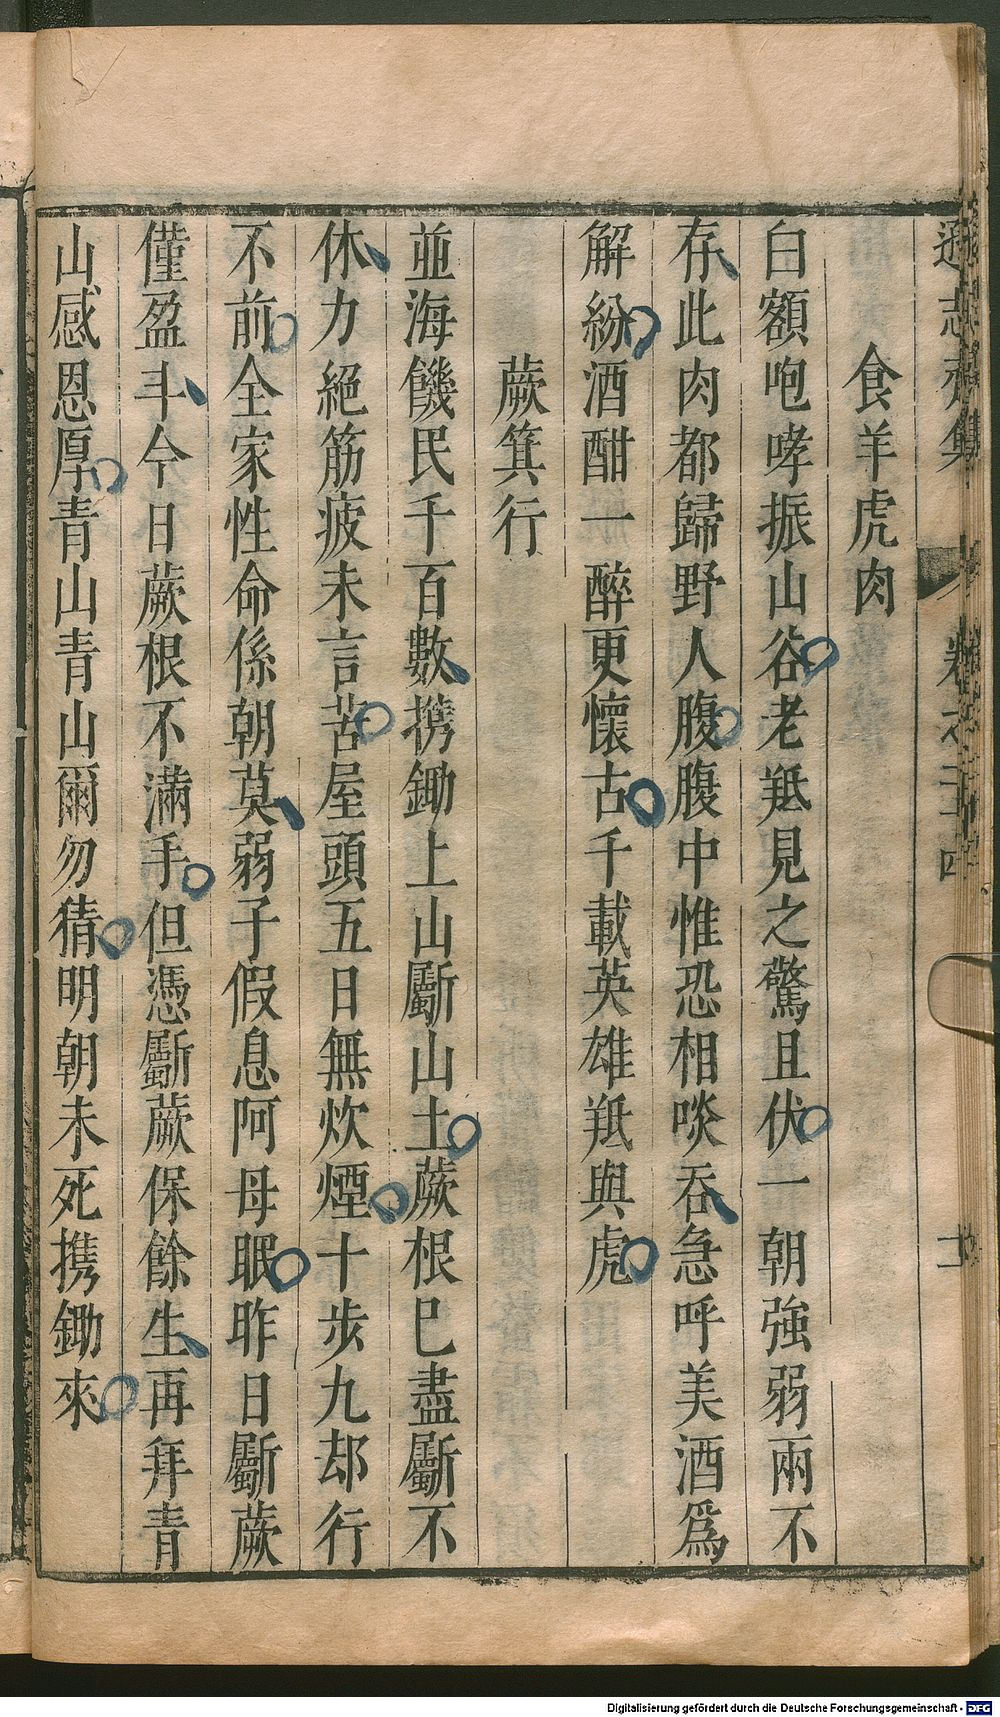 遜志齋集 卷之二十四
食羊虎肉
白額咆哮振山谷老羝見之驚且伏一朝強弱兩不
存此肉都歸野人腹腹中惟恐相啖吞急呼美酒爲
解紛酒酣一醉更懷古千載英雄羝與虎
蕨箕行
並海饑民千百數携鋤上山斸山土蕨根巳盡斸不
休力絕筋疲未言苦屋頭五日無炊煙十步九却行
不前全家性命係朝莫弱子假息阿母眠昨日斸蕨
僅盈斗今日蕨根不滿手但憑斸蕨保餘生再拜青
山感恩厚青山青山爾勿猜明朝未死携鋤來
Digitalisierung gefördert durch die Deutsche Forschungsgemeinschaft - DFG